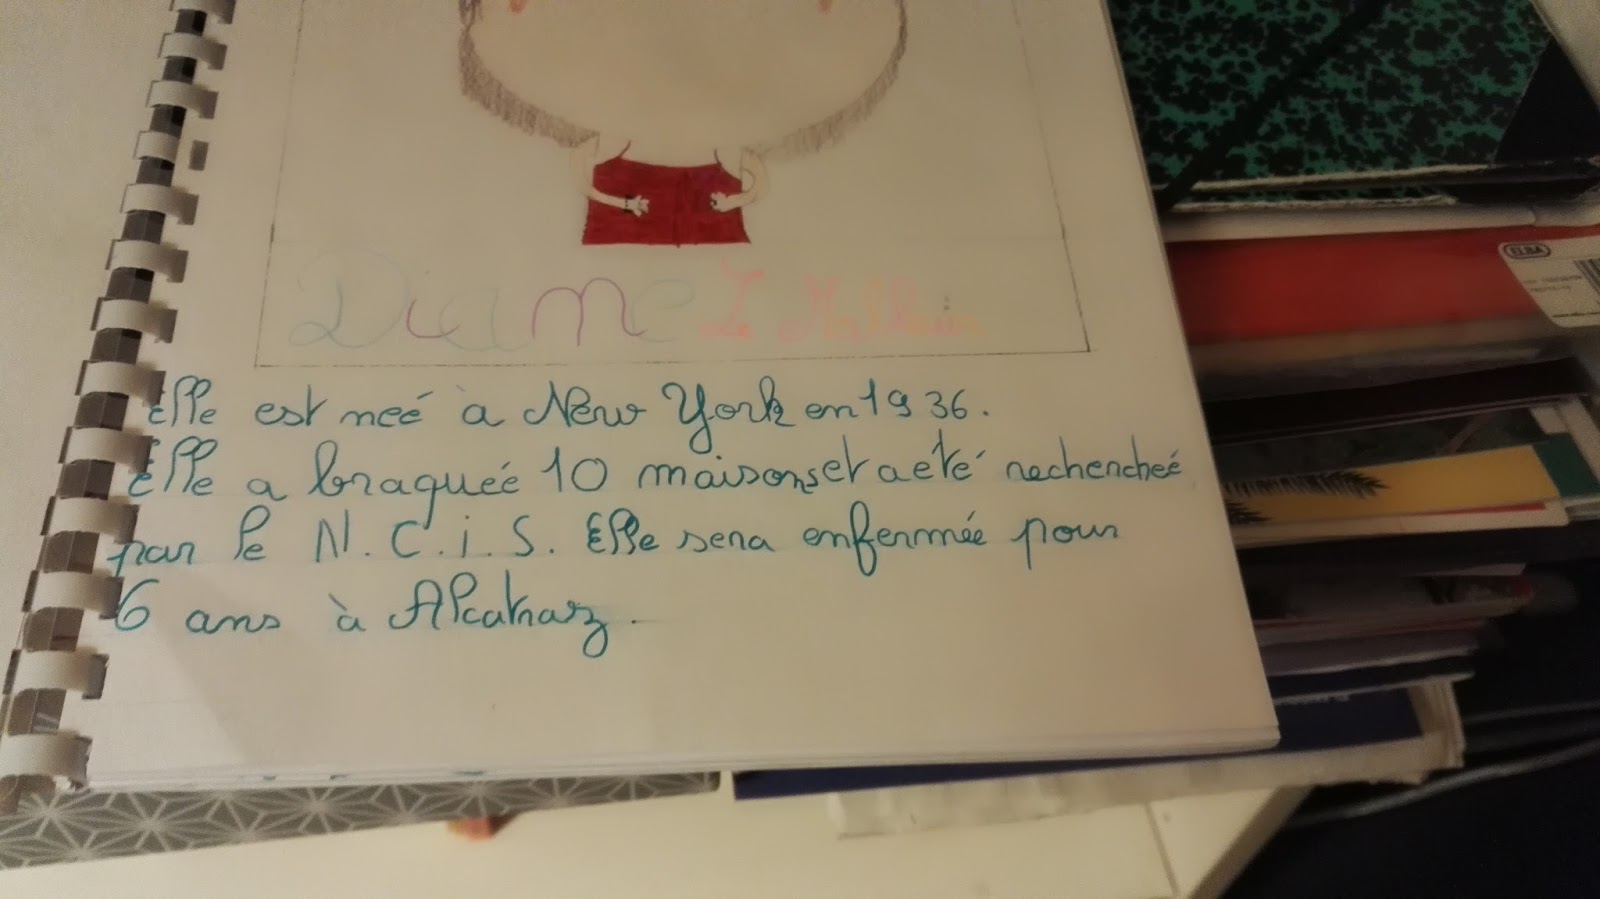 Diane Le
Elle est neé à New York en 1936.
Elle a braqueé 10 maisons et a eté rechercheé
par le N.C.i.S. Elle sera enfermée pour
6 ans à Alcatraz.
ELBA